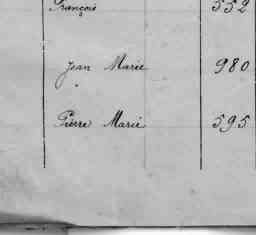 François 552
Jean Marie 980
Pierre Marie 595